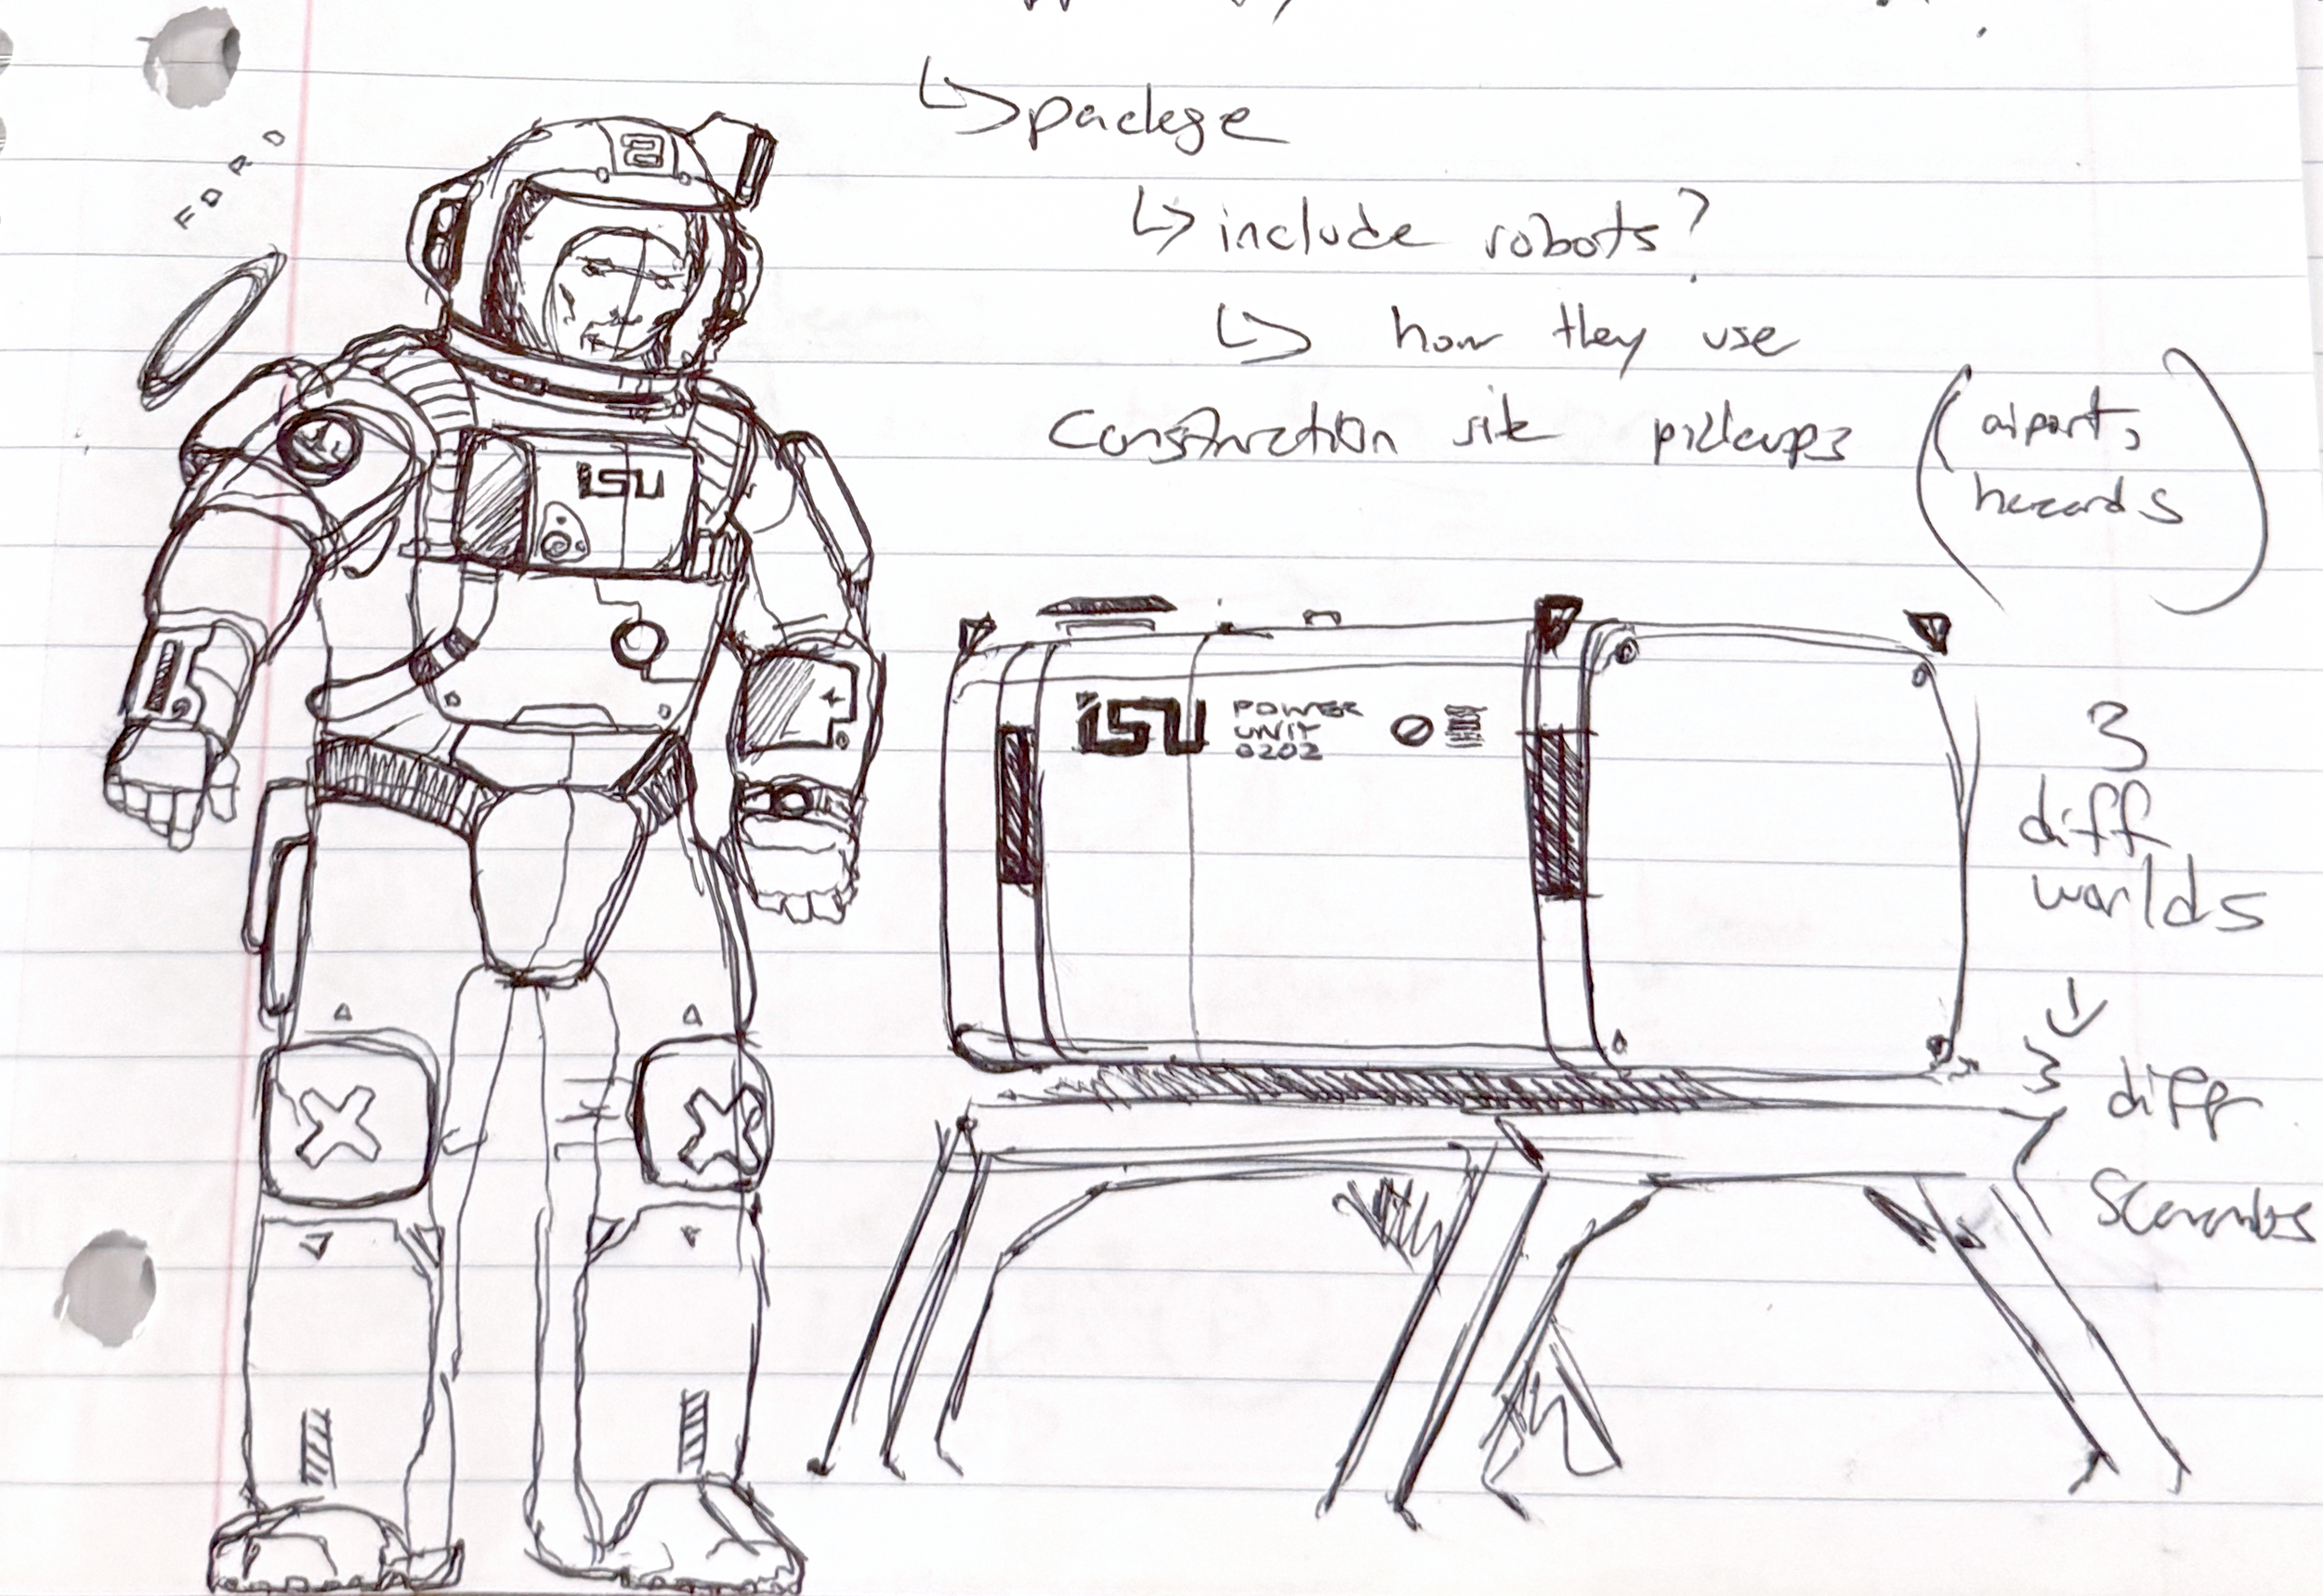 ↳ package
↳ include robots?
↳ how they use
construction site pickups (airports, hazards)
FORD
2
ISU
ISU POWER UNIT 0202
3
diff
worlds
↓
3 diff
Scenarios